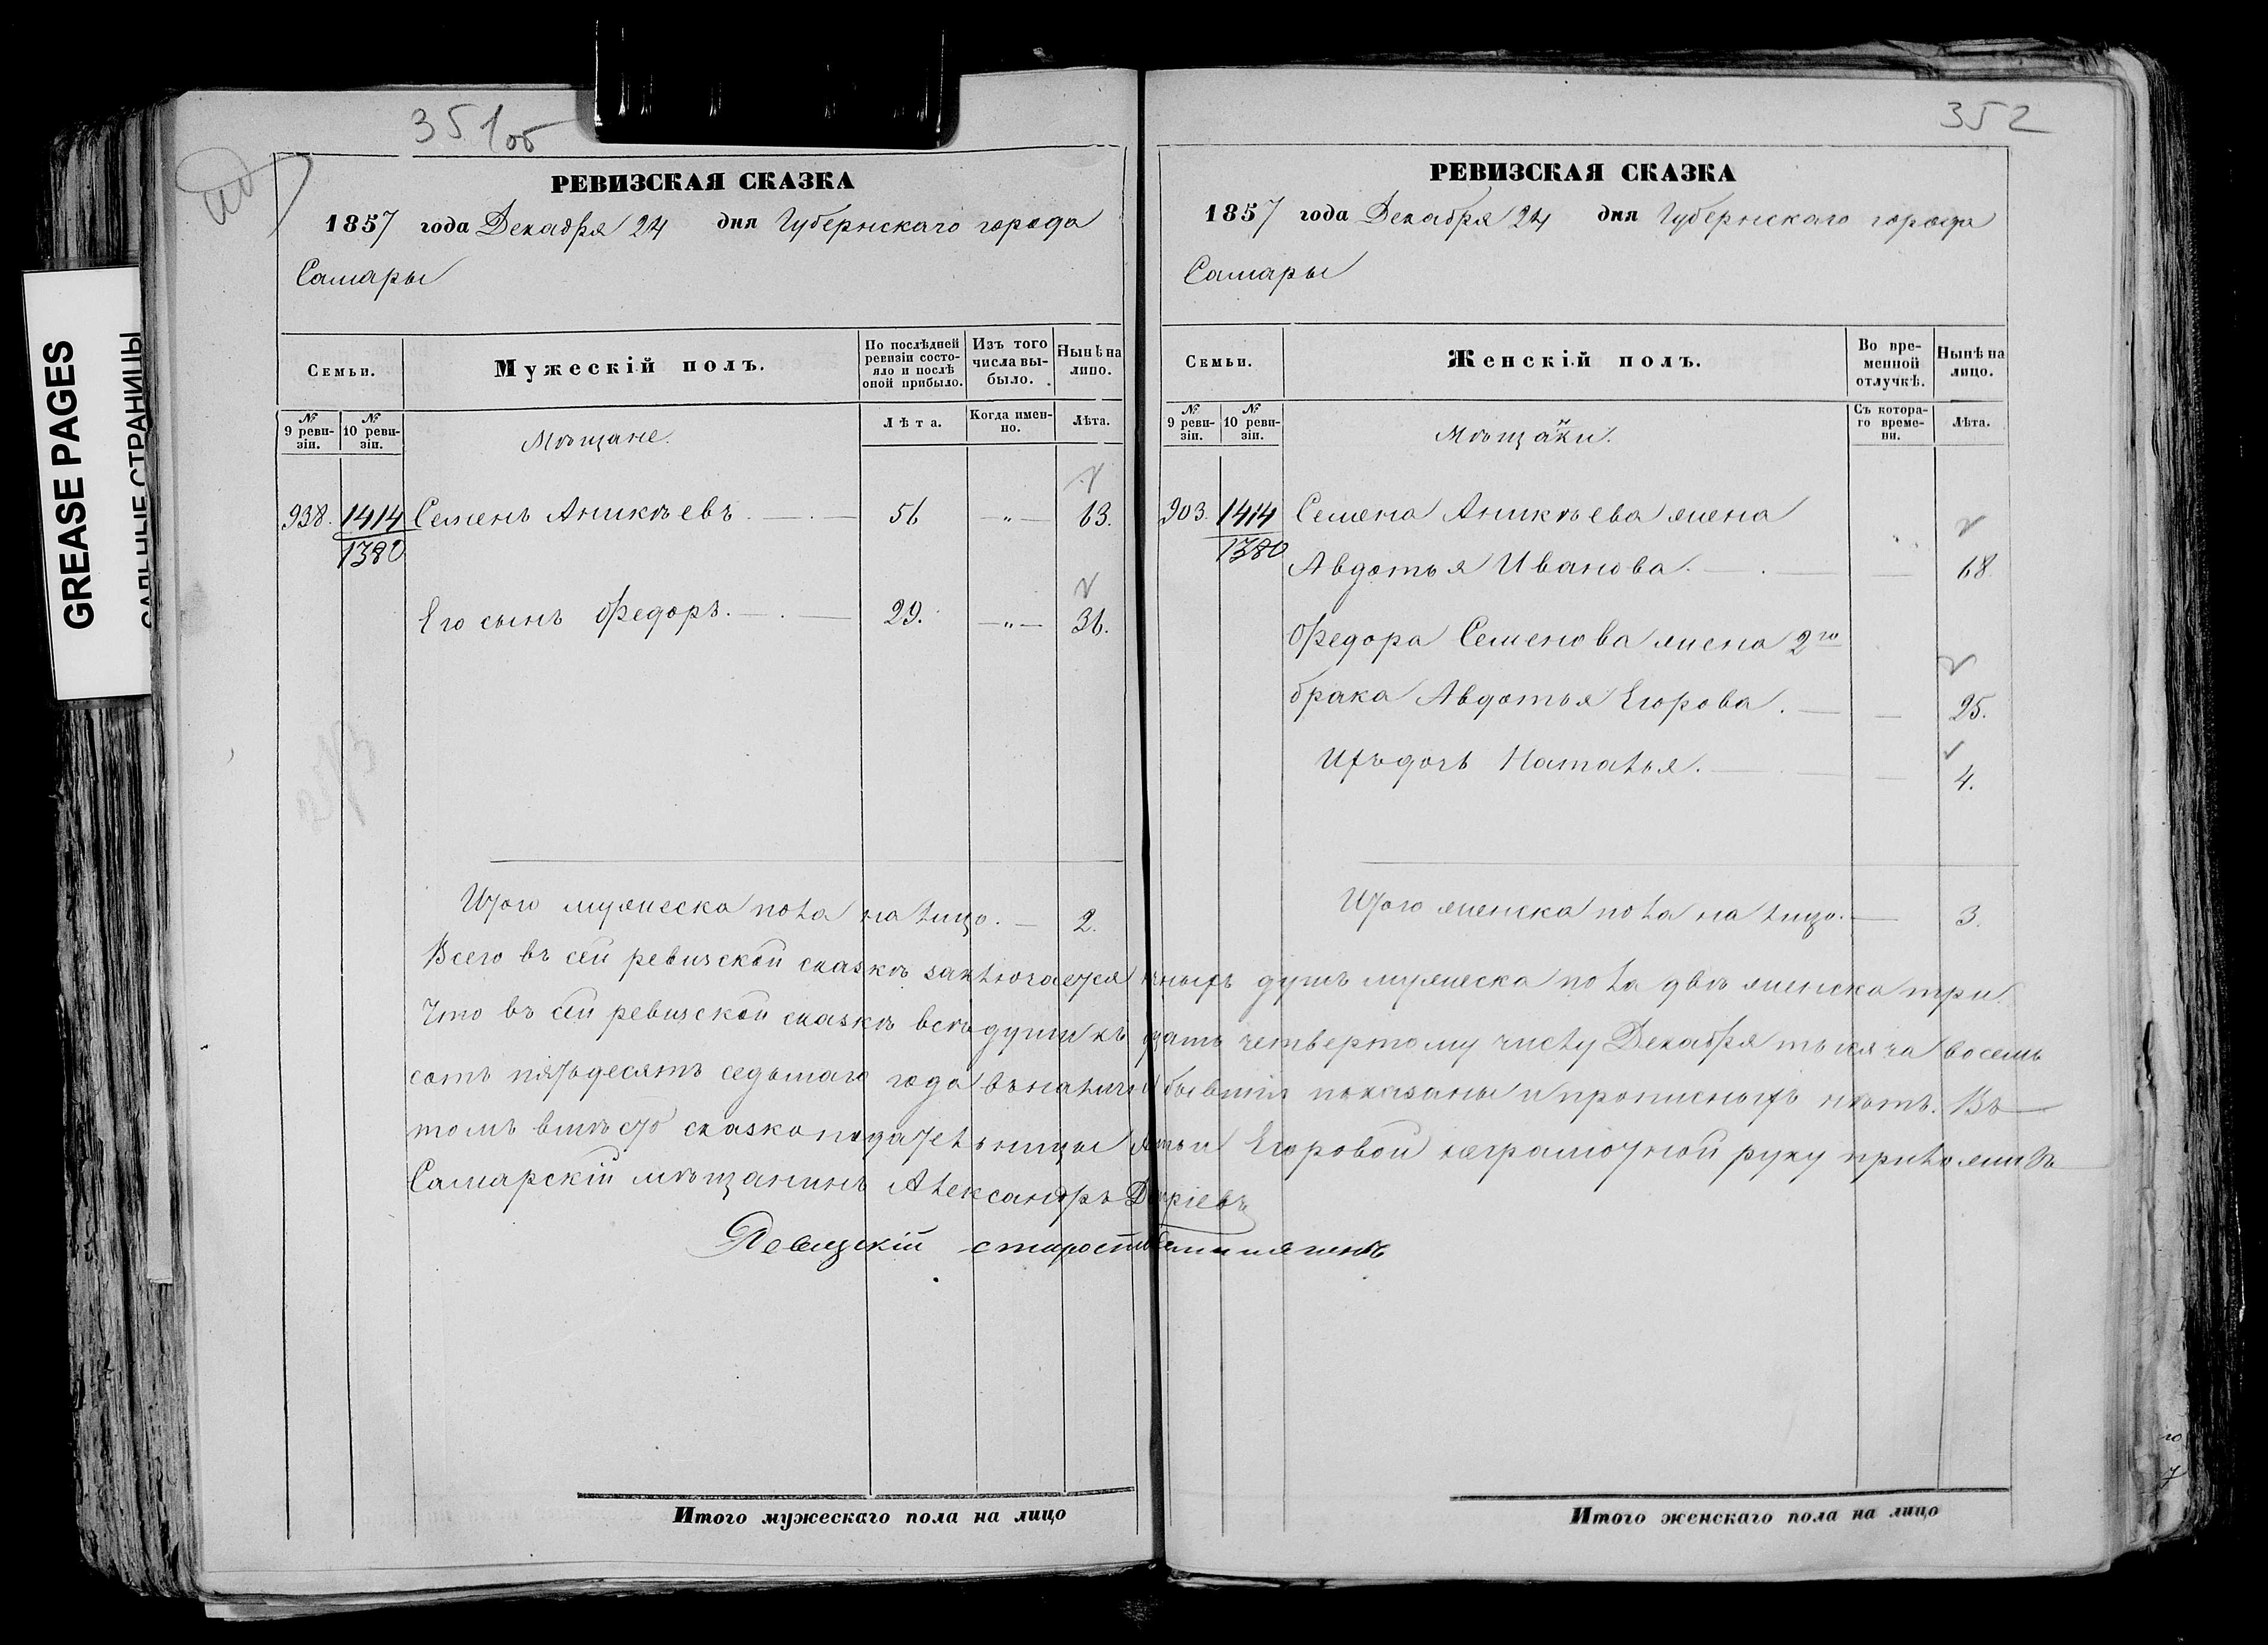 351об
РЕВИЗСКАЯ СКАЗКА
1857 года Декабря 24 дня Губернскаго города
Самары
Семьи.
Мужескій полъ.
По послѣдней ревизіи состояло и послѣ оной прибыло.
Изъ того числа выбыло.
Нынѣ на лицо.
№ 9 ревизіи.
№ 10 ревизіи.
Мѣщане.
Лѣта.
Когда именно.
Лѣта.
938. 1414 Семенъ Аникѣевъ. — 56 —„— 63.
1380
Его сынъ Федоръ. — 29. —„— 36.
Итого мужеска пола на лицо. — 2.
352
РЕВИЗСКАЯ СКАЗКА
1857 года Декабря 24 дня Губернскаго города
Самары
Семьи.
Женскій полъ.
Во временной отлучкѣ.
Нынѣ на лицо.
№ 9 ревизіи.
№ 10 ревизіи.
Мѣщанки.
Съ котораго времени.
Лѣта.
903. 1414 Семена Аникѣева жена
1380
Авдотья Иванова. — — 68.
Федора Семенова жена 2го
брака Авдотья Егорова. — — 25.
Ихъ дочь Наталья. — — 4.
Итого женска пола на лицо. — 3.
Всего въ сей ревизской сказкѣ заключается душъ мужеска пола двѣ женска три.
Что въ сей ревизской сказкѣ всѣ души къ четвертому числу Декабря тысяча восемь
сотъ пятьдесятъ седьмаго года въ наличіи бывшія показаны и прописныхъ нѣтъ. Въ
томъ вмѣсто сказкоподательницы Егоровой неграмотной руку приложилъ
Самарскій мѣщанинъ Александръ
староста
Итого мужескаго пола на лицо
Итого женскаго пола на лицо
GREASE PAGES
САЛЬНЫЕ СТРАНИЦЫ